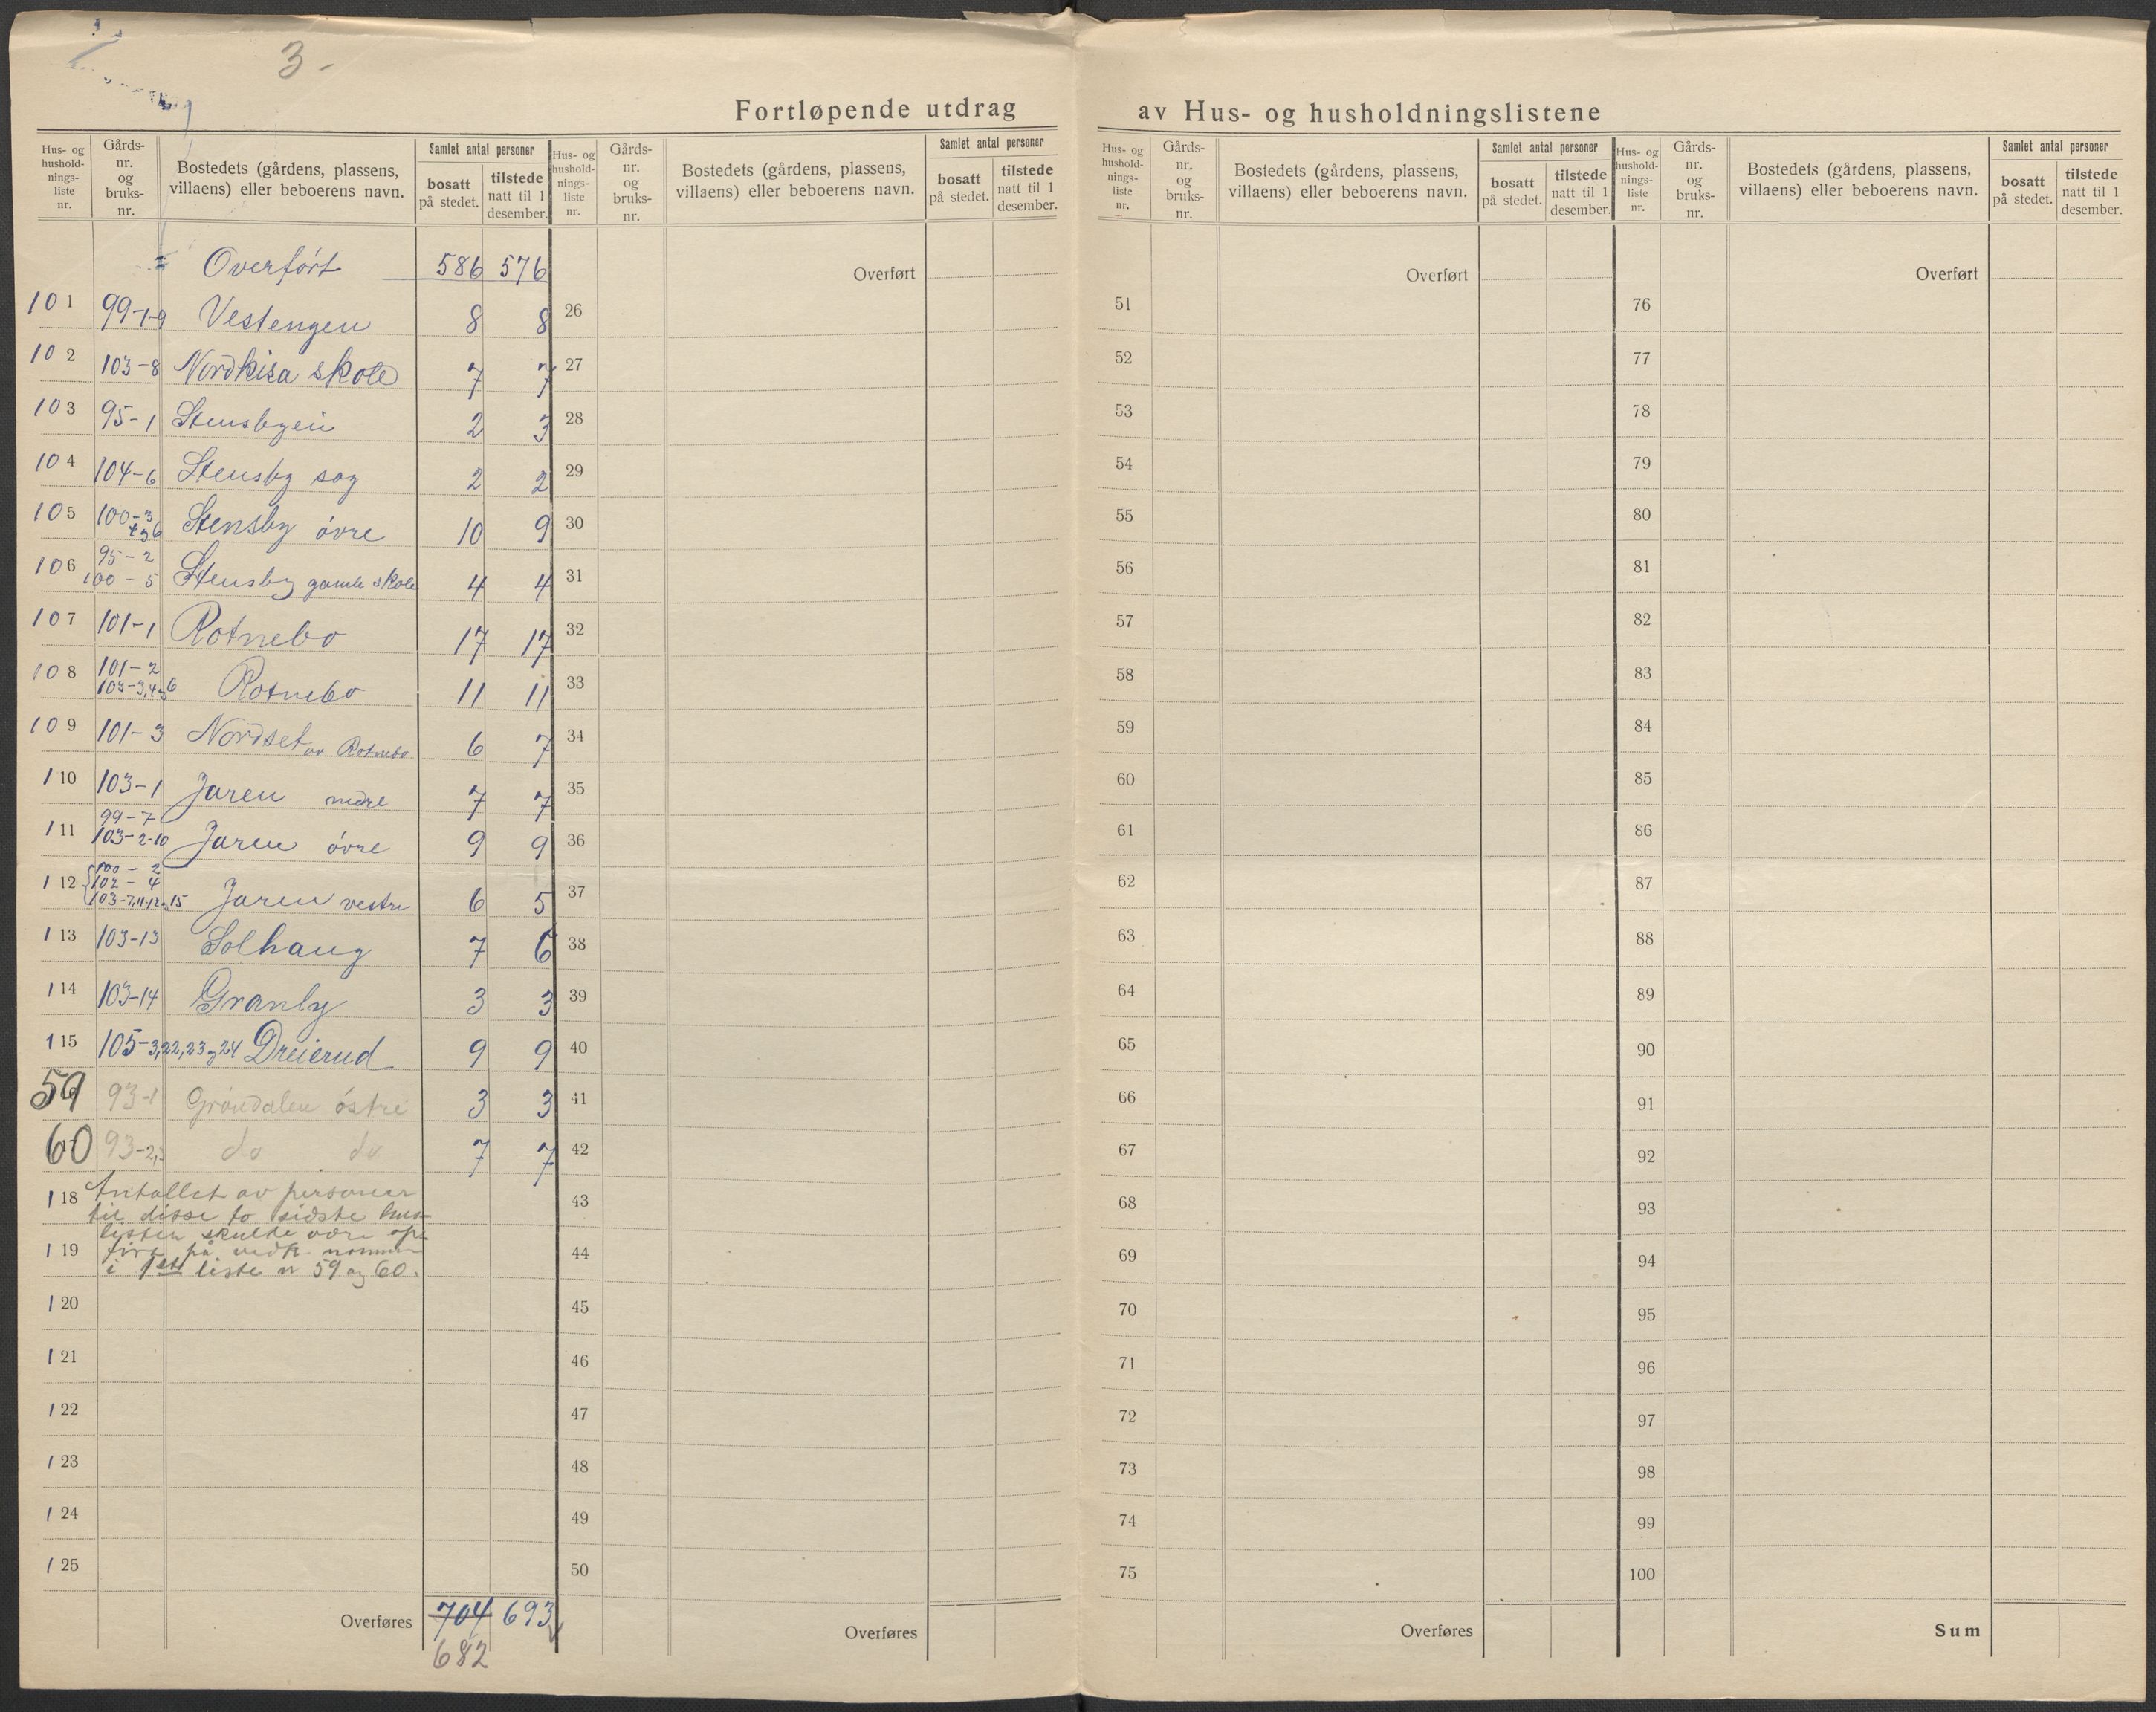 3-
Fortløpende utdrag av Hus- og husholdningslistene
Hus- og husholdnings-liste nr. | Gårds-nr. og bruks-nr. | Bostedets (gårdens, plassens, villaens) eller beboerens navn. | Samlet antal personer | bosatt på stedet. | tilstede natt til 1 desember.
Overført 586 576
101 99-1-9 Vestengen 8 8
102 103-8 Nordkisa skole 7 7
103 95-1 Stensbyeie 2 3
104 104-6 Stensby sag 2 2
105 100-3 4 og 6 Stensby övre 10 9
106 95-2 100-5 Stensby gamle skole 4 4
107 101-1 Rotnebo 17 17
108 101-2 103-3,4 og 6 Rotnebo 11 11
109 101-3 Nordset av Rotnebo 6 7
110 103-1 Jaren nedre 7 7
111 99-7 103-2-10 Jaren övre 9 9
112 100-2 102-4 103-7,11,12 og 15 Jaren vestre 6 5
113 103-13 Solhaug 7 6
114 103-14 Granly 3 3
115 105-3,22,23 og 24 Dreierud 9 9
59 93-1 Gröndalen östre 3 3
60 93-2,3 do do 7 7
118 Antallet av personer
til disse to sidste hus-
listen skulde være op-
119 före på vedk. nommer
i 1ste liste nr 59 og 60.
120
121
122
123
124
125
Overføres 704 693
682
Hus- og husholdnings-liste nr. | Gårds-nr. og bruks-nr. | Bostedets (gårdens, plassens, villaens) eller beboerens navn. | Samlet antal personer | bosatt på stedet. | tilstede natt til 1 desember.
Overført
26
27
28
29
30
31
32
33
34
35
36
37
38
39
40
41
42
43
44
45
46
47
48
49
50
Overføres
Hus- og husholdnings-liste nr. | Gårds-nr. og bruks-nr. | Bostedets (gårdens, plassens, villaens) eller beboerens navn. | Samlet antal personer | bosatt på stedet. | tilstede natt til 1 desember.
Overført
51
52
53
54
55
56
57
58
59
60
61
62
63
64
65
66
67
68
69
70
71
72
73
74
75
Overføres
Hus- og husholdnings-liste nr. | Gårds-nr. og bruks-nr. | Bostedets (gårdens, plassens, villaens) eller beboerens navn. | Samlet antal personer | bosatt på stedet. | tilstede natt til 1 desember.
Overført
76
77
78
79
80
81
82
83
84
85
86
87
88
89
90
91
92
93
94
95
96
97
98
99
100
Sum